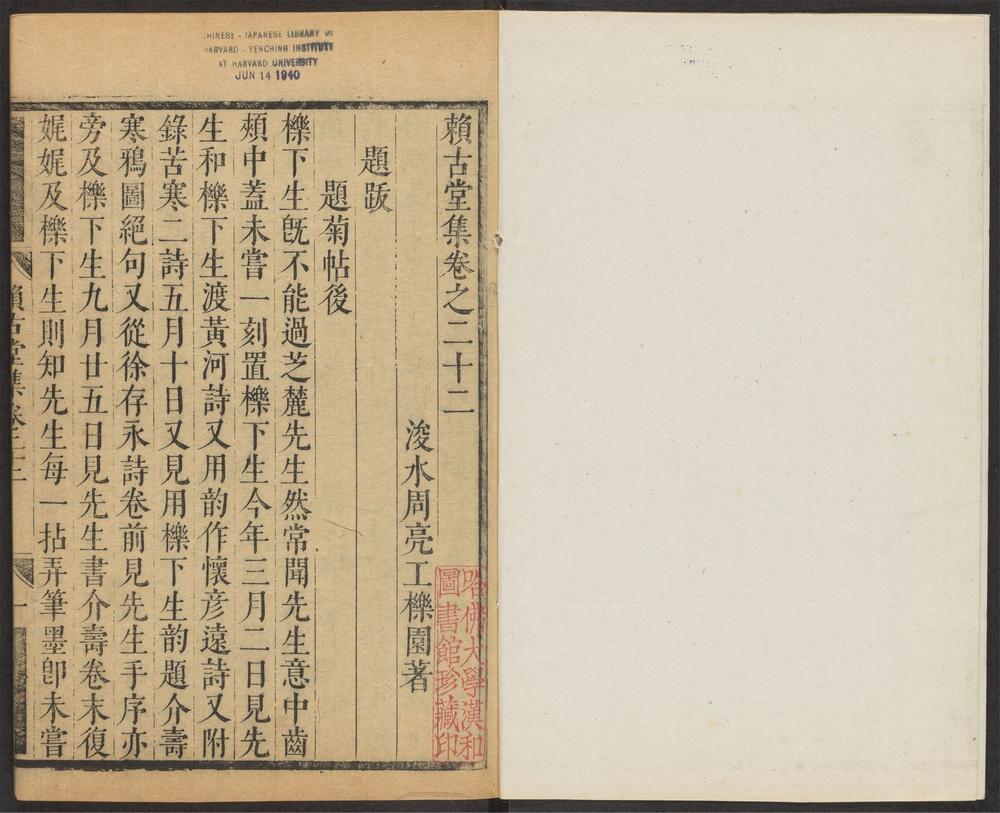 CHINESE - JAPANESE LIBRARY OF
HARVARD - YENCHING INSTITUTE
AT HARVARD UNIVERSITY
JUN 14 1940
賴古堂集卷之二十二
浚水周亮工櫟園著
題跋
題菊帖後
櫟下生旣不能過芝麓先生然常聞先生意中齒
頰中蓋未嘗一刻置櫟下生今年三月二日見先
生和櫟下生渡黃河詩又用韵作懷彥遠詩又附
錄苦寒二詩五月十日又見用櫟下生韵題介壽
寒鴉圖絕句又從徐存永詩卷前見先生手序亦
旁及櫟下生九月廿五日見先生書介壽卷末復
娓娓及櫟下生則知先生每一拈弄筆墨卽未嘗
賴古堂集卷二十二
一
哈佛大學漢和
圖書館珍藏印